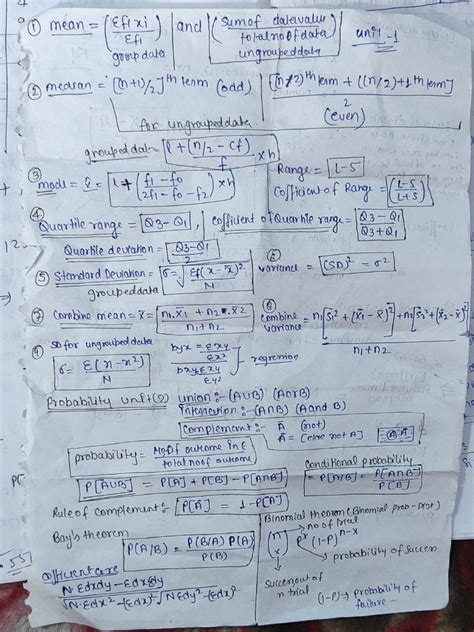 ① mean = (Σfixi / Σfi) group data and (Sum of data value / total no of data) ungrouped data unit-1
② median = [(n+1)/2]th term (odd) [(n/2)th term + ((n/2)+1th term] / 2 (even)
for ungrouped data
grouped data = l + (n/2 - Cf) / f × h
③ mode = x̂ = l + (f1 - f0 / 2f1 - f0 - f2) × h
Range = L-S
Cofficient of Range = (L-S / L+S)
④ Quartile range = Q3-Q1, Cofficient of Quartile range = Q3-Q1 / Q3+Q1
Quartile deviation = Q3-Q1 / 2
⑤ Standard Deviation = σ = √Σf(x-x̄)² / N
grouped data
⑥ variance = (SD)² = σ²
⑦ Combine mean = x̄ = n1.x̄1 + n2.x̄2 / n1+n2
⑧ Combine variance = n1[S1² + (x̄1-x̄)²] + n1[S2² + (x̄2-x̄)²] / n1+n2
⑨ SD for ungrouped data
σ = Σ(x-x̄)² / N
byx = Σxy / Σx²
bxy Σxy / Σy²
regression
Probability unit (2)
union :- (A∪B) (A or B)
Intersection :- (A∩B) (A and B)
Complement :- Ā (not)
probability = No of outcome in E / total no of outcome
P[A∪B] = P[A] + P[B] - P[A∩B]
Conditional probability
= P(A/B) = P[A∩B] / P[B]
Rule of Complement :- P[Ā] = 1-P[A]
Bay's theorem
P(A/B) = P(B/A) P(A) / P(B)
Binomial theorem (Binomial prob-Dist)
no of trial
(n x) p^x (1-P)^n-x
probability of succen
Succen out of n trial
(1-P) → probability of failure -
Cofficient core
N·Σdxdy - Σdx Σdy / √N·Σdx² - (Σdx)² √N Σdy² - (Σdx)²